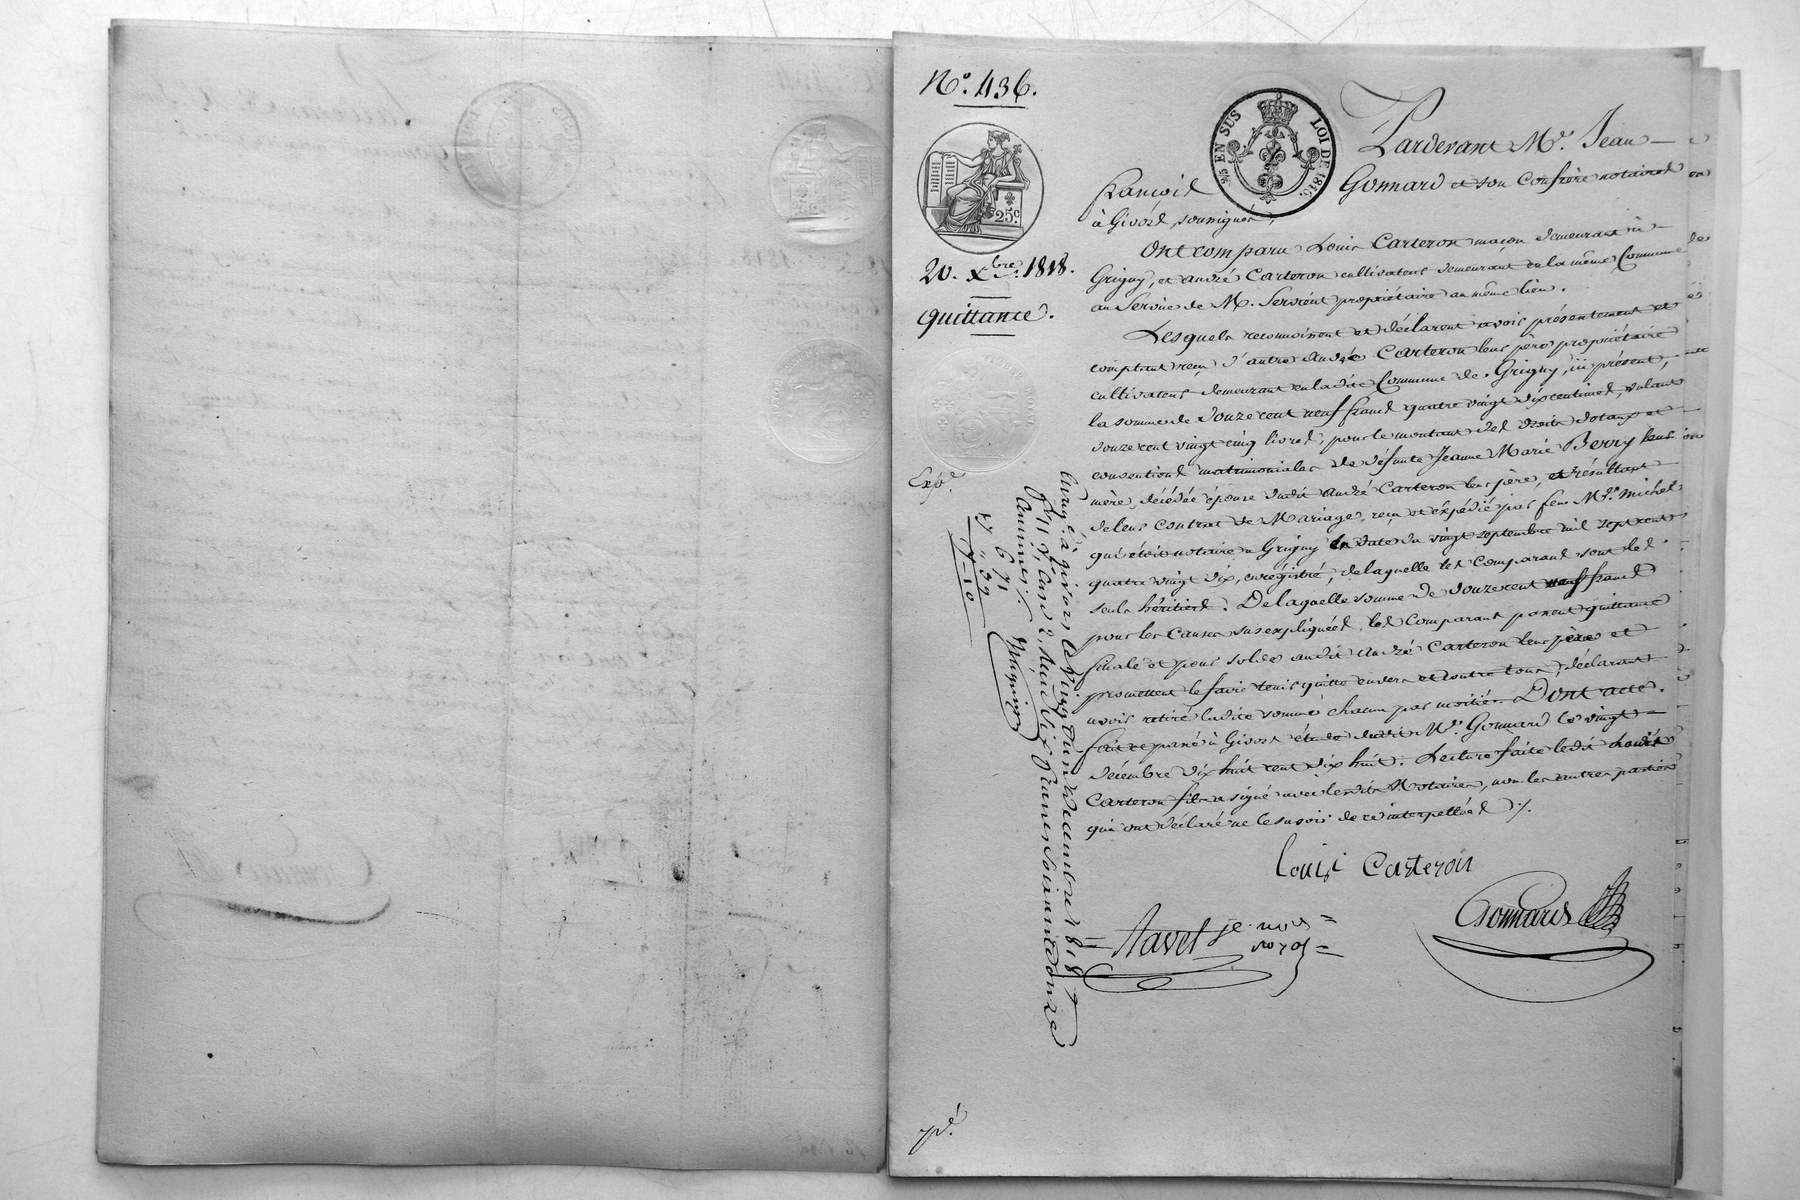 N.º 436.
¾ EN SUS
LOI DE 1816.
25c
20. Xbre 1818.
Quittance.
Expé.
Pardevant Me. Jean
françois Gonnard et son Confrère notaires
à Givors, soussignés,
Ont comparu Louis Carteron maçon demeurant à
Grigny, et andré Carteron cultivateur demeurant en la même Commune
au Service de M. Servient propriétaire au même lieu.
Lesquels reconnoissent et déclarent avoir présentement et
comptant reçu d'autre andré Carteron leur père propriétaire
cultivateur demeurant en ladite Commune de Grigny, ici présent,
la somme de douze cent neuf francs quatre vingt dix centimes, valant
douze cent vingt cinq livres, pour le montant des droits dotaux et
conventions matrimoniales de défunte Jeanne Marie Berry leur
mère, décédée épouse dudit andré Carteron leur père, et résultant
de leur contrat de Mariage, reçu et expédié par feu Me. Michel
qui étoit notaire à Grigny en date du vingt septembre mil sept cent
quatre vingt dix, enregistré, de laquelle les Comparans sont les
seuls héritiers. De laquelle somme de douze cent neuf francs
pour les Causes sus expliquées, les Comparans passent quittance
finale et pour solde audit andré Carteron leur père et
promettent le faire tenir quitte envers et contre tous, déclarant
avoir retiré ladite somme chacun par moitié. Dont acte.
fait et passé à Givors étude dudit Me. Gonnard le vingt
décembre dix huit cent dix huit. Lecture faite ledit Louis
Carteron fils a signé avec lesdits Notaires, non les autres parties
qui ont déclaré ne le savoir de ce interpellées ./.
Louis Carteron
Gonnard
Navet
Enregé. à givors le vingt un décembre 1818
f. 11 V. Case 2 Reçu Six francs Soixante onze
Centimes ./.
6 71